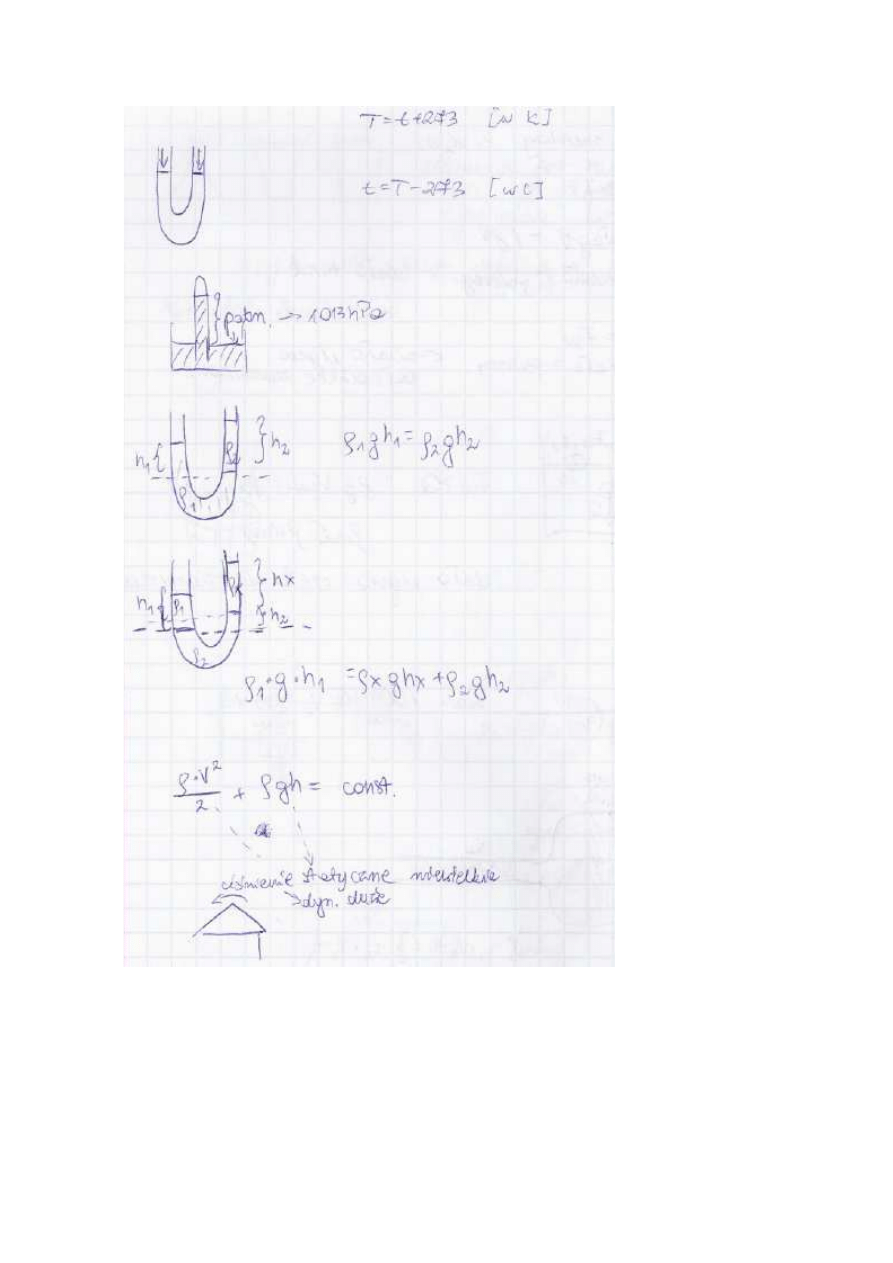 T=t+273 [w K]
t=T-273 [w C]
patm. → 1013hPa
h₁ ρ₁ ρ₂ h₂ ρ₁gh₁=ρ₂gh₂
h₁ ρ₁ ρx hx
h₂
ρ₂
ρ₁·g·h₁ =ρx ghx +ρ₂gh₂
ρ·V²/2 + ρgh = const.
ciśnienie statyczne niewielkie
→dyn. duże